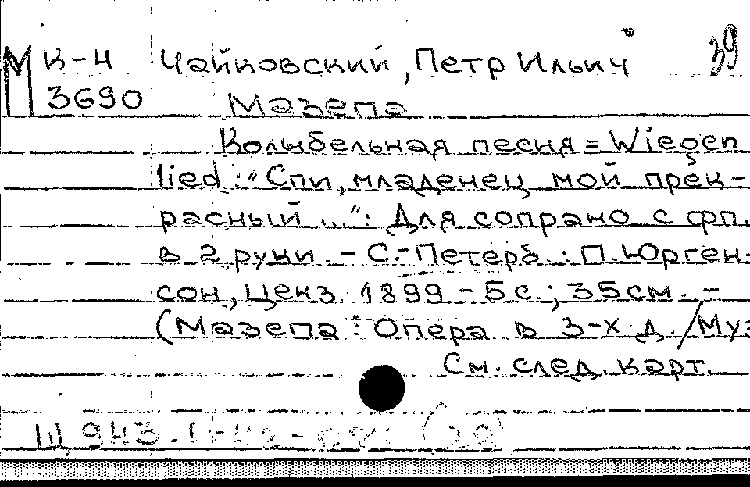 М К-4 Чайковский, Петр Ильич 39
3690 Мазепа
Колыбельная песня = Wiegen
lied : "Спи, младенец мой прек-
расный ...": Для сопрано с фп.
в 2 руки. - С.-Петерб. : П. Юрген-
сон, Ценз. 1899 - 5 с.; 35 см. -
(Мазепа : Опера в 3-х д. / Муз
См. след. карт.
Щ 943.